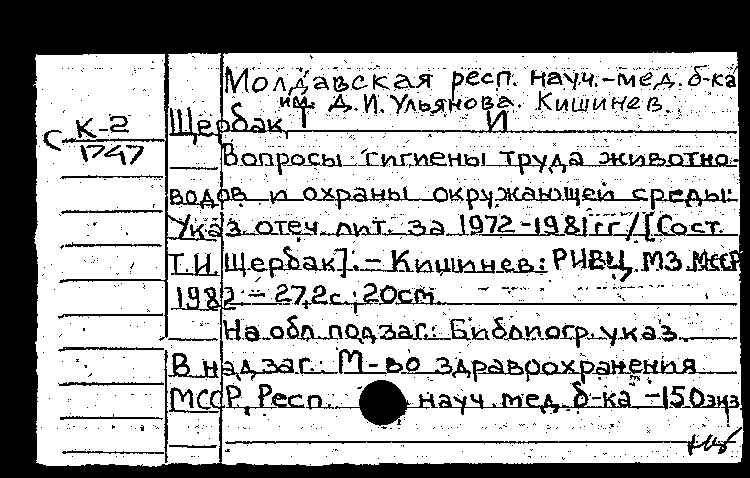 Молдавская респ. науч.-мед. б-ка
им. Д. И. Ульянова. Кишинев.
С К-2
1747
Щербак, Т И
Вопросы гигиены труда животно-
водов и охраны окружающей среды:
Указ. отеч. лит. за 1972-1981гг/[Сост.
Т.И. Щербак]. - Кишинев: РИВЦ МЗ МССР
1982 - 27,2с.; 20см.
На обл. подзаг.: Библиогр. указ.
В надзаг.: М-во здравоохранения
МССР, Респ. науч. мед. б-ка - 150экз